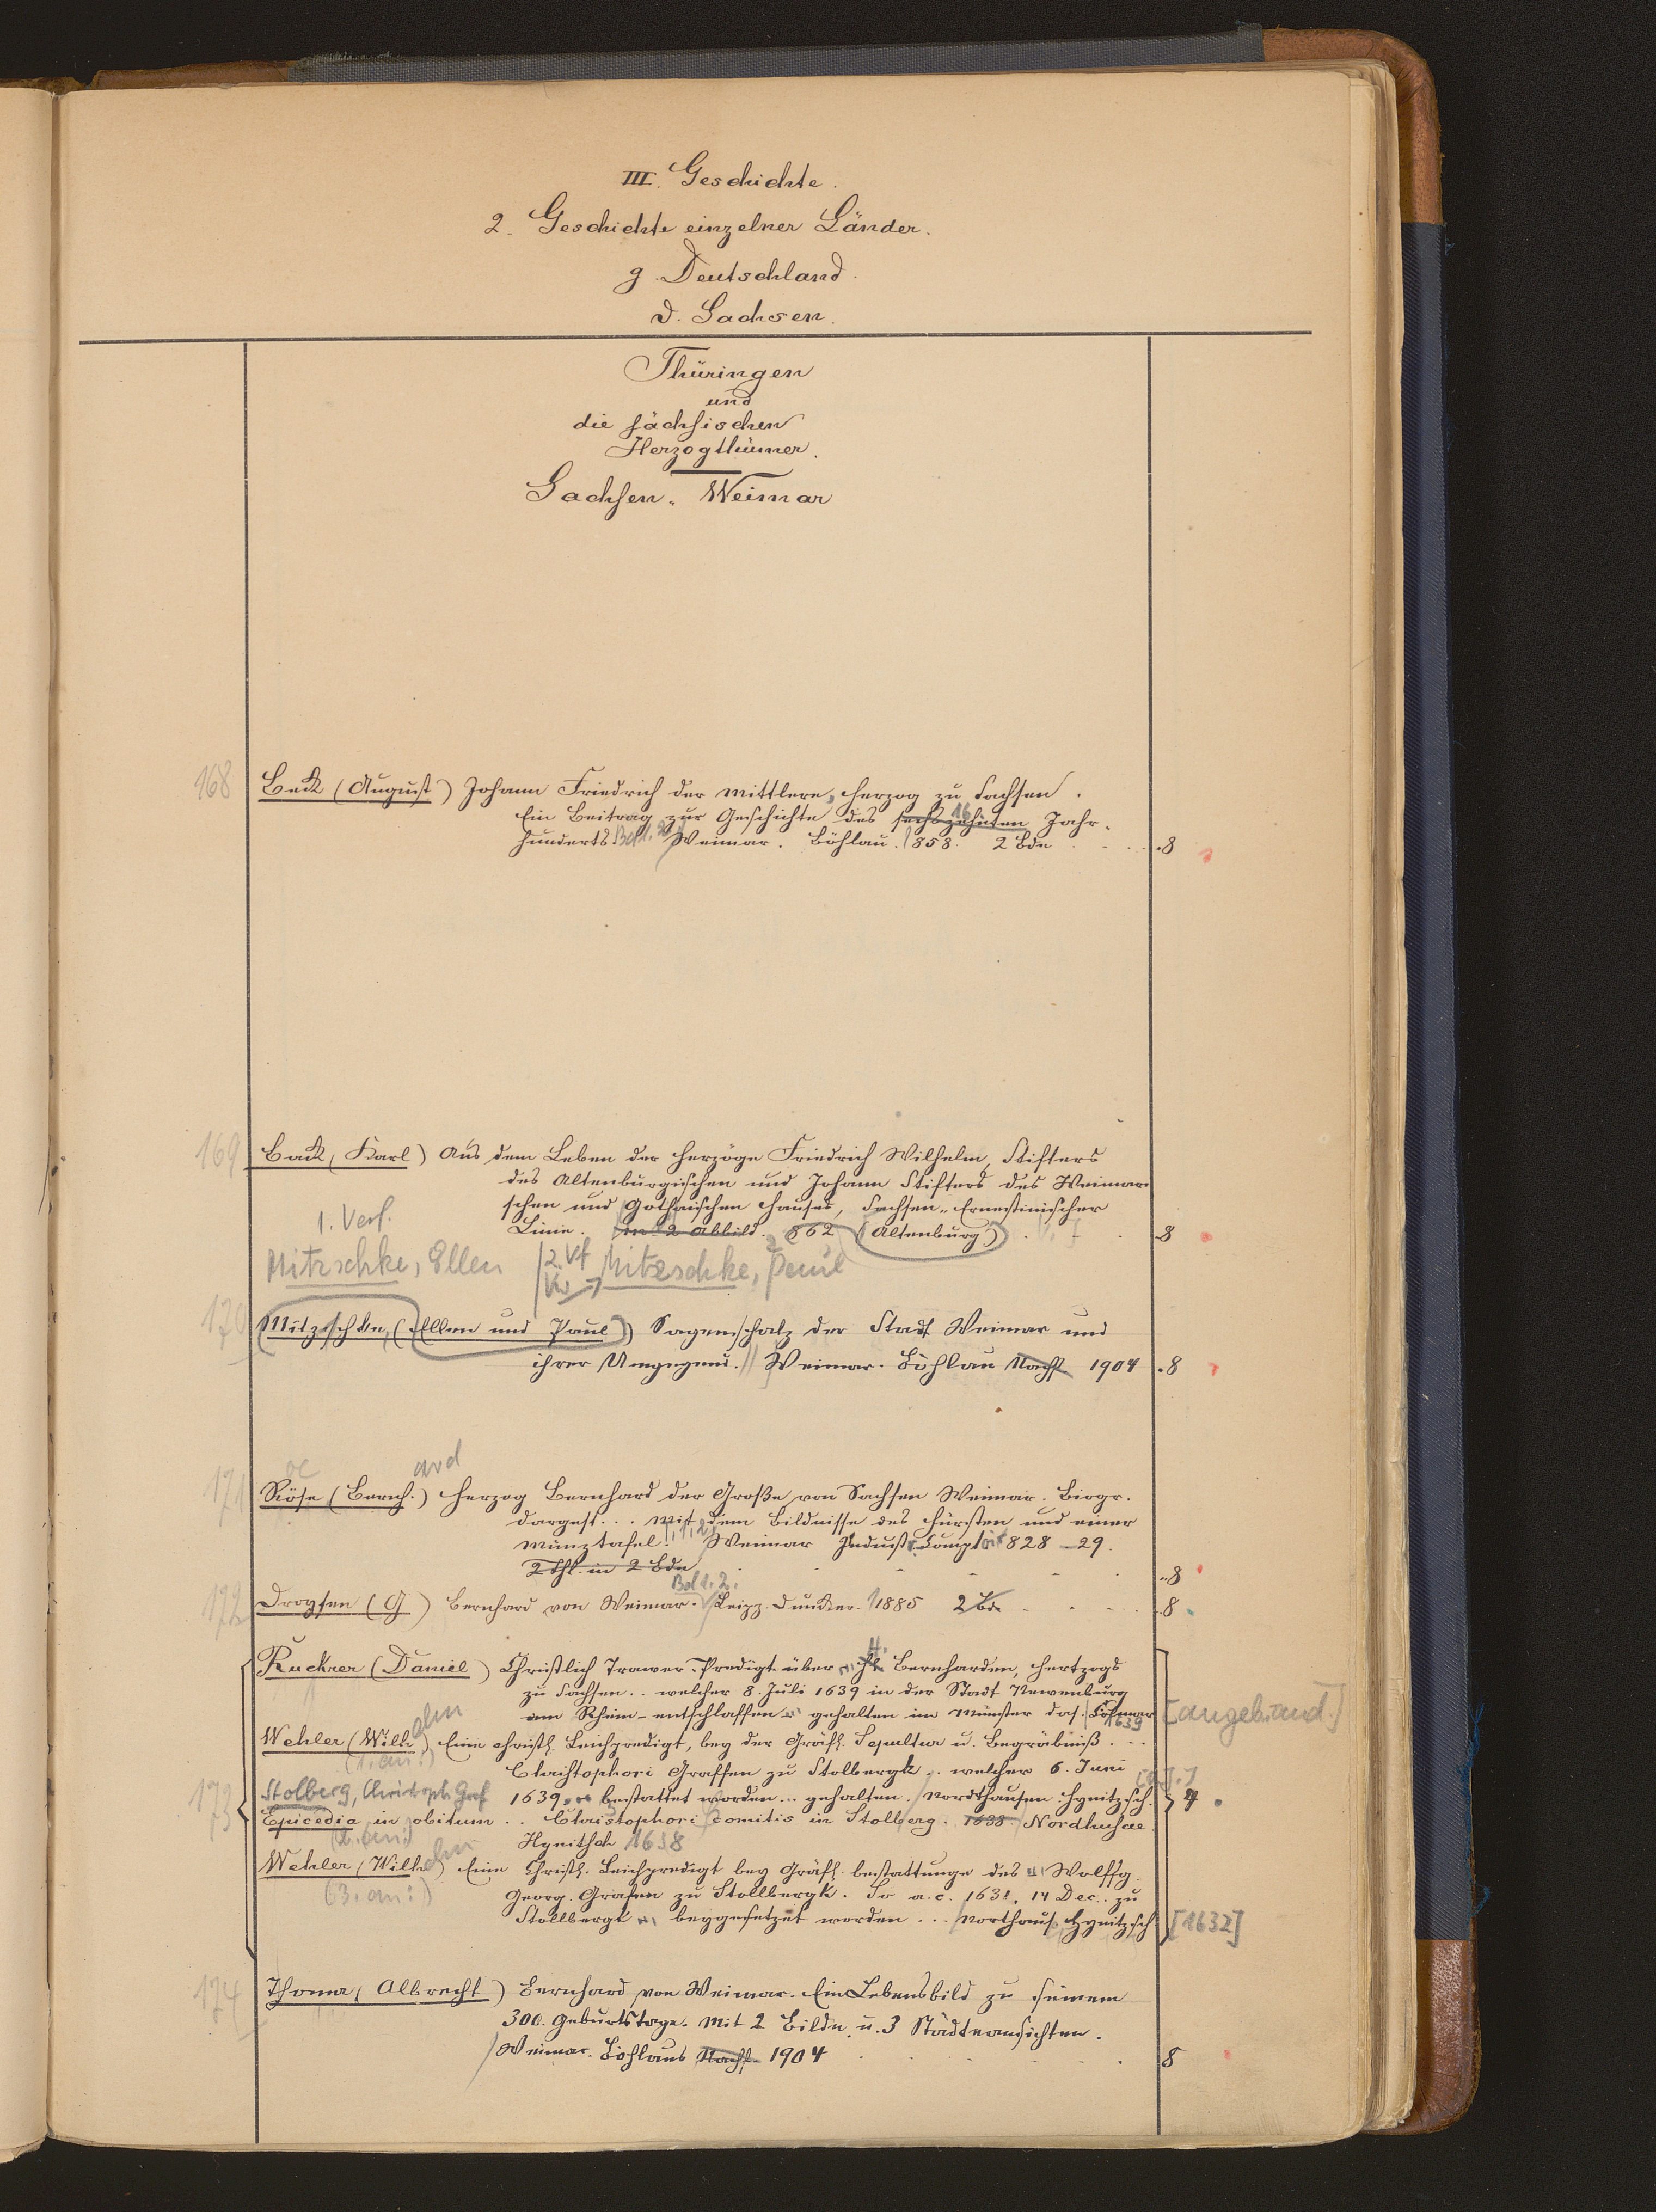 III. Geschichte.
2. Geschichte einzelner Länder.
g. Deutschland.
d. Sachsen.
Thüringen
und
die sächsischen
Herzogthümer.
Sachsen-Weimar
168 Beck (August) Johann Friedrich der Mittlere, Herzog zu Sachsen.
Ein Beitrag zur Geschichte des sechszehnten 16 Jahr-
hunderts Bd 1. 2 Weimar. Böhlau. 1858. 2 Bde . . . 8
169 Back, Karl) Aus dem Leben der Herzöge Friedrich Wilhelm, Stifters
des Altenburgischen und Johann Stifters des Weimari
schen und Gothaischen Hauses, Sachsen-Ernestinischer
Linie. Mit 2 Abbild. 862 (Altenburg) . . 8
1. Verf.
Mitzschke, Ellen
2. Vf
Mitzschke, Paul
170 Mitzschke, (Ellen und Paul) Sagenschatz der Stadt Weimar und
ihrer Umgegend. Weimar. Böhlau Nachf 1904 . 8
oe ard
171 Röse (Bernh.) Herzog Bernhard der Große von Sachsen Weimar. Biogr.
dargest... Mit dem Bildnisse des Fürsten und einer
Münztafel. 1, 2 Weimar Industr. Comptoir 828-29.
2 Thl. in 2 Bde . . . 8
Bd 1. 2.
172 Droysen (G) Bernhard von Weimar. Leipz. Duncker. 1885 2 Bde . . . 8
Ruckner (Daniel) Christlich Trawer-Predigt über H. Bernharden, Hertzogs
zu Sachsen.. welcher 8. Juli 1639 in der Stadt Newenburg
am Rhein-entschlaffen gehalten im Münster das. Colmar 1639 [angeb. an d.]
Wehler (Wilh elm) Eine christl. Leichpredigt, bey der Gräfl. Sepultur u. Begräbniß...
(1. an:)
Christophori Graffen zu Stolbergk.. welcher 6. Juni
173 Stolberg, Christoph Graf 1639, bestattet worden... gehalten. Nordthausen. Hynitzsch. [o.J.] 4
Epicedia in obitum .. Christophori comitis in Stolberg. 1638. Nordhusae.
(2. an:)
Hynitsch 1638
Wehler (Wilh elm) Eine Christl. Leichpredigt bey Gräfl. bestattunge des Wolffg
(3. an:)
Georg. Grafen zu Stollbergk. So a. c. 1631. 14 Dec.. zu
Stollbergk beygesetzet worden... Northaus. Hynitzsch [1632]
174 Thoma, Albrecht) Bernhard von Weimar. Ein Lebensbild zu seinem
300. Geburtstage. Mit 2 Bildn. u. 3 Städteansichten.
Weimar. Böhlaus Nachf. 1904 . . . 8